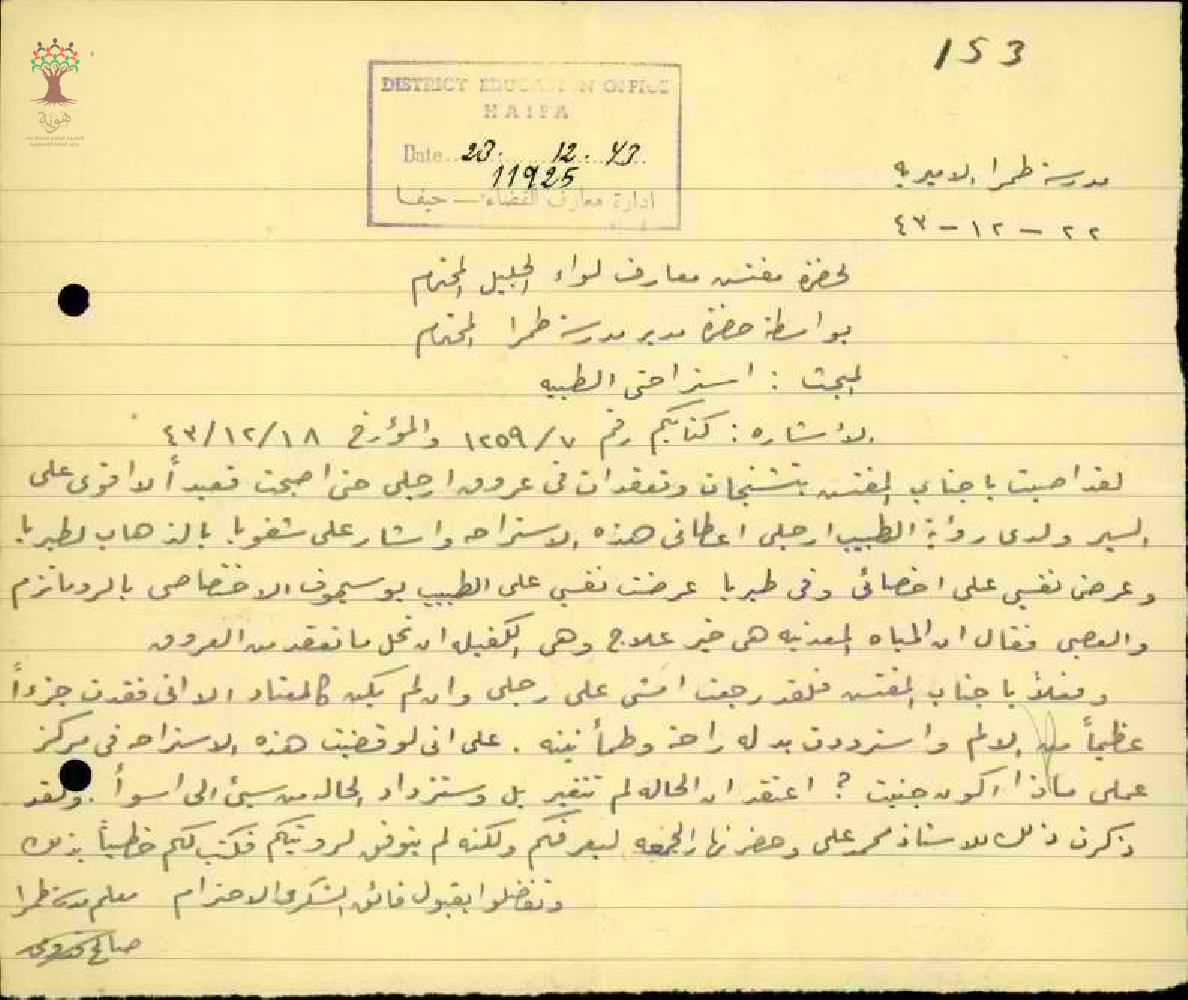 153
DISTRICT EDUCATION OFFICE
HAIFA
Date 23. 12. 43
11925
ادارة معارف القضاء — حيفا
هوية
مدرسة طمرا الاميريه
٢٢ - ١٢ - ٤٣
لحضرة مفتش معارف لواء الجليل المحترم
بواسطة حضرة مدير مدرسة طمرا المحترم
المبحث : استراحتي الطبيه
الأشاره : كتابكم رقم ٧/١٢٥٩ والمؤرخ ٤٣/١٢/١٨
لقد اصبت يا جناب المفتش بتشنجات وتعقدات في عروق ارجلي حتى اصبحت قعيداً لا اقوى على
السير ولدى رؤية الطبيب ارجلي اعطاني هذه الاستراحه واشار علي شفويا بالذهاب لطبريا
وعرض نفسي على اخصائي وفي طبريا عرضت نفسي على الطبيب بوسيموف الاختصاصي بالروماتزم
والعصبي فقال ان المياه المعدنيه هي خير علاج وهي الكفيل ان تحل ما تعقد من العروق
وفعلاً يا جناب المفتش فلقد رجعت امشي على رجلي وان لم يكن كالمعتاد الا اني فقدت جزءاً
عظيماً من الالم واسترددت بدله راحة وطمأنينه . على اني لو قضيت هذه الاستراحه في مركز
عملي ماذا اكون جنيت ؟ اعتقد ان الحاله لم تتغير بل وستزداد الحاله من سيئ الى اسوأ . ولقد
ذكرت ذلك للاستاذ محمد علي وحضر نهار الجمعه ليعرفكم ولكنه لم يتوفق لرويتكم فكتب لكم خطياً بذلك
وتفضلوا بقبول فائق الشكر والاحترام معلم مدرسة طمرا
صالح